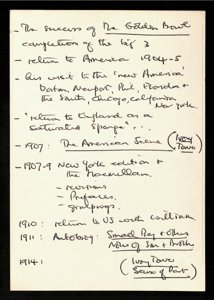 - The success of The Golden Bowl
completion of the big 3
- return to America 1904-5
- his visit to the 'new America'
Boston, Newport, Phil, Florida &
the South, Chicago, California
New York.
- 'return to England as a
saturated sponge' ...
- 1907: The American Scene (Ivory
Tower)
- 1907-9 New York edition &
the Macmillan.
- revisions
- Prefaces.
- groupings.
1910: return to US with William
1911: Autobiog: Small Boy & Others
Notes of Son & Brother
1914: (Ivory Tower
Sense of Past)